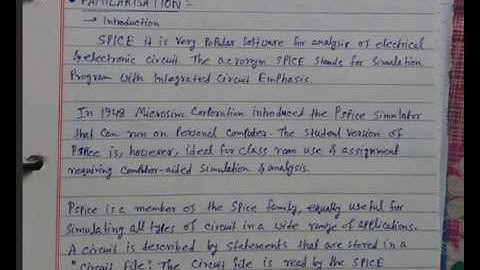 • FAMILARISATION :-
→ Introduction
SPICE it is Very Popular Software for analysis of electrical
& electronic circuit. The acronym SPICE stands for Simulation
Program with Integrated Circuit Emphasis.
In 1948 Microsim Corloration introduced the Pspice simulator
that Can run on Personal Combuter. The student version of
Pspice is, however, ideal for class room use & assignment
requiring combuter-aided simulation & analysis.
Pspice is a member of the Spice family, equally useful for
Simulating all types of circuit in a wide range of applications.
A circuit is described by statements that are stored in a
"Circuit file". The Circuit file is read by the SPICE